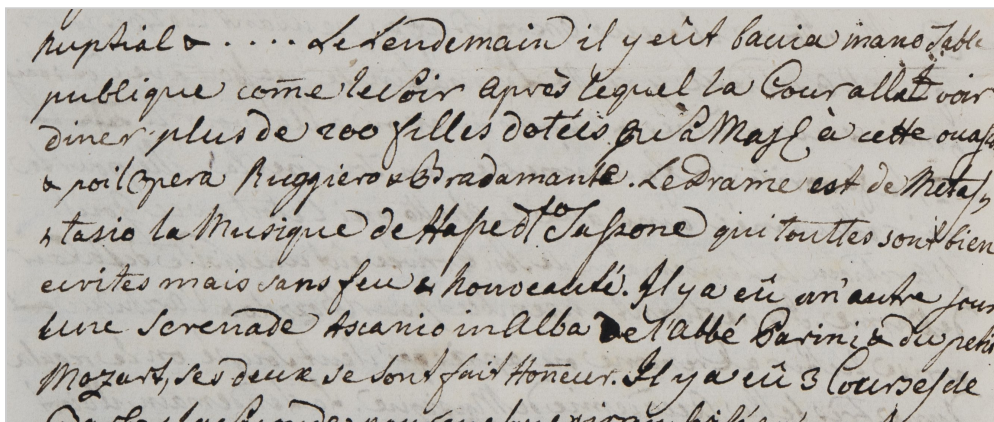 nuptial & . . . . Le Lendemain il y eût bacia mano Table
publique come le Soir après lequel la Cour allat voir
diner plus de 200 filles dotées Ma à cette
& poi l'Opera Ruggiero & Bradamante. Le Drame est de Metas,,
,,tasio la Musique de Hasse dto Sassone qui touttes sont bien
ecrites mais sans feu & nouveauté. Il y a eû un autre jour
une Serenade Ascanio in Alba de l'Abbé Parini & du petit
Mozart, ses deux se sont fait Honeur. Il y a eû 3 Courses de